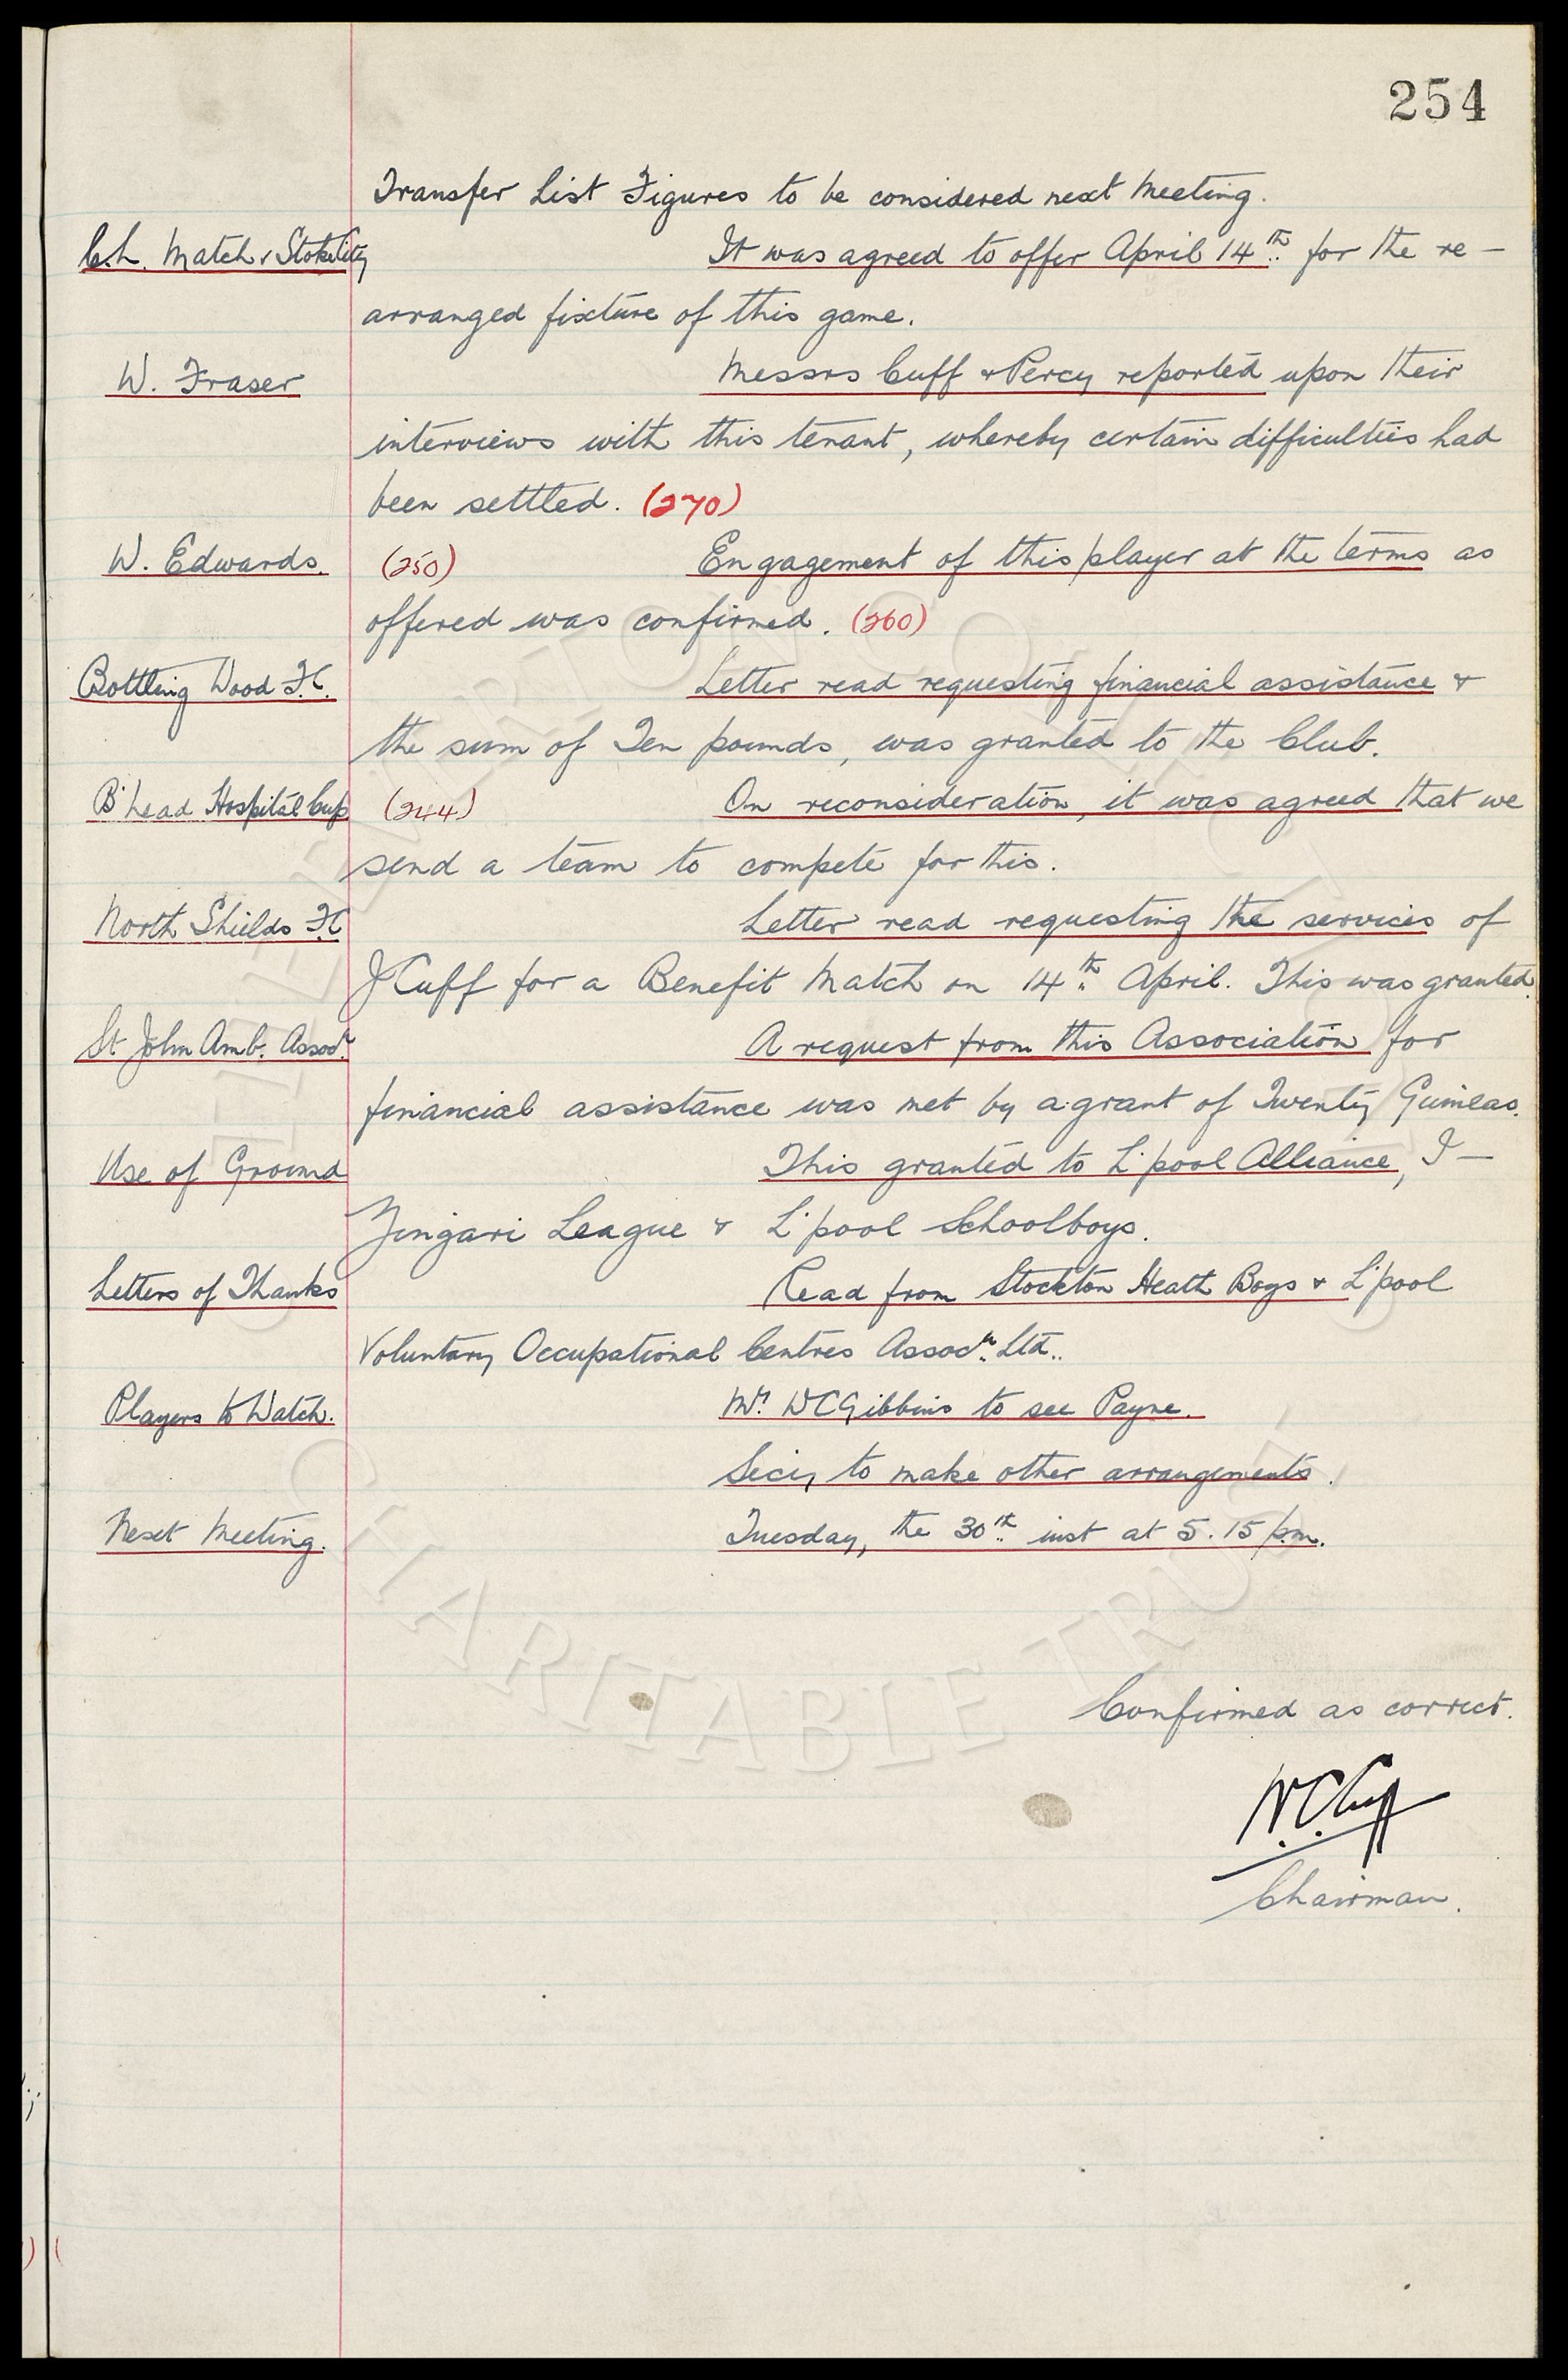 254
Transfer List Figures to be considered next Meeting.
C.L. Match v Stoke City It was agreed to offer April 14th for the re-
arranged fixture of this game.
W. Fraser Messrs Cuff & Percy reported upon their
interviews with this tenant, whereby certain difficulties had
been settled. (270)
W. Edwards. (250) Engagement of this player at the terms as
offered was confirmed. (260)
Bottling Wood F.C. Letter read requesting financial assistance &
the sum of Ten pounds, was granted to the Club.
B'head Hospital Cup (244) On reconsideration, it was agreed that we
send a team to compete for this.
North Shields F.C Letter read requesting the services of
J Cuff for a Benefit Match on 14th April. This was granted.
St John Amb. Assocn. A request from this Association for
financial assistance was met by a grant of Twenty Guineas.
Use of Ground This granted to L'pool Alliance, I-
Zingari League & L'pool Schoolboys.
Letters of Thanks Read from Stockton Heath Boys & L'pool
Voluntary Occupational Centres Assocn. Ltd..
Players to Watch. Mr. W C Gibbins to see Payne.
Secy to make other arrangements.
Next Meeting. Tuesday, the 30th inst at 5.15 p.m.
Confirmed as correct.
W.C. Cuff
Chairman.
CHARITABLE TRUST